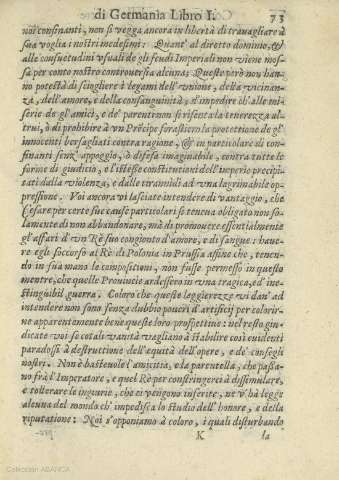 di Germania Libro I. 73
noi confinanti, non si vegga ancora in libertà di travagliare à
sua voglia i nostri medesimi: Quant' al diretto dominio, &
alle consuetudini vsuali de gli feudi Imperiali non viene mos-
sa per conto nostro controuersia alcuna: Queste però non han-
no potestà di sciogliere i legami dell'vnione, della vicinan-
za, dell'amore, e della consanguinità, d'impedire ch'alle mi-
serie de gl'amici, e de' parenti non si risenta la tenerezza al-
trui, ò di prohibire à vn Prĕcipe forastiero la protettione de gl'
innocenti bersagliati contra ragione, & in particolare di con-
finanti senz' appoggio, ò difesa imaginabile, contra tutte le
forme di giudicio, e l'istesse constitutioni dell'imperio precipi-
tati dalla violenza, e dalle tirannidi ad vna lagrimabile op-
pressione. Voi ancora vi lasciate intendere di vantaggio, che
Cesare per certe sue cause particolari si teneua obligato non so-
lamente di non abbandonare, mà di promouere essentialmente
gl'affari d'vn Rè suo congionto d'amore, e di sangue: haue-
re egli soccorso al Rè di Polonia in Prussia affine che, tenen-
do in sua mano le compositioni, non fusse permesso in questo
mentre, che quelle Prouincie ardessero in vna tragica, ed ine-
stinguibil guerra. Coloro che queste leggierezze vi dan' ad
intendere non sono senza dubbio poueri d'artificij per colorir-
ne apparentemente bene queste loro prospettiue: nel resto giu-
dicate voi se cotali vanità vagliano à stabilire così euidenti
paradossi à destruttione dell'equità dell'opere, e de' consegli
nostri. Non è basteuole l'amicitia, e la parentella, che passa-
no frà l'Imperatore, e quel Rè per constringerci à dissimulare,
e tollerare le ingiurie, che ci vengono inferite, ne v'hà legge
alcuna del mondo ch' impedisca lo studio dell' honore, e della
riputatione: Noi s'opponiamo à coloro, i quali disturbando
K la
Colección ABANCA